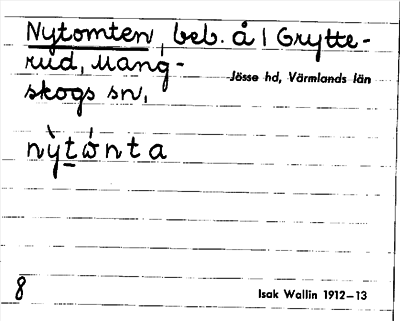 Nytomten, beb. å 1 Grytte-
rud, Mang-
skogs sn,
Jösse hd, Värmlands län
nỳtώnta
8
Isak Wallin 1912–13